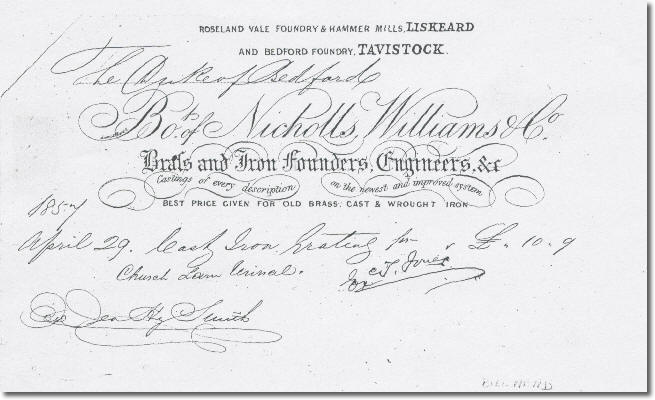 ROSELAND VALE FOUNDRY & HAMMER MILLS, LISKEARD
AND BEDFORD FOUNDRY, TAVISTOCK.
The Duke of Bedford
Bot. of Nicholls, Williams & Co.
Brass and Iron Founders, Engineers, &c
Castings of every description on the newest and improved system
BEST PRICE GIVEN FOR OLD BRASS, CAST & WROUGHT IRON
1857
April 29. Cast Iron Grating for " £ " 10 " 9
Church Lane Urinal.
Geo Hy Smith